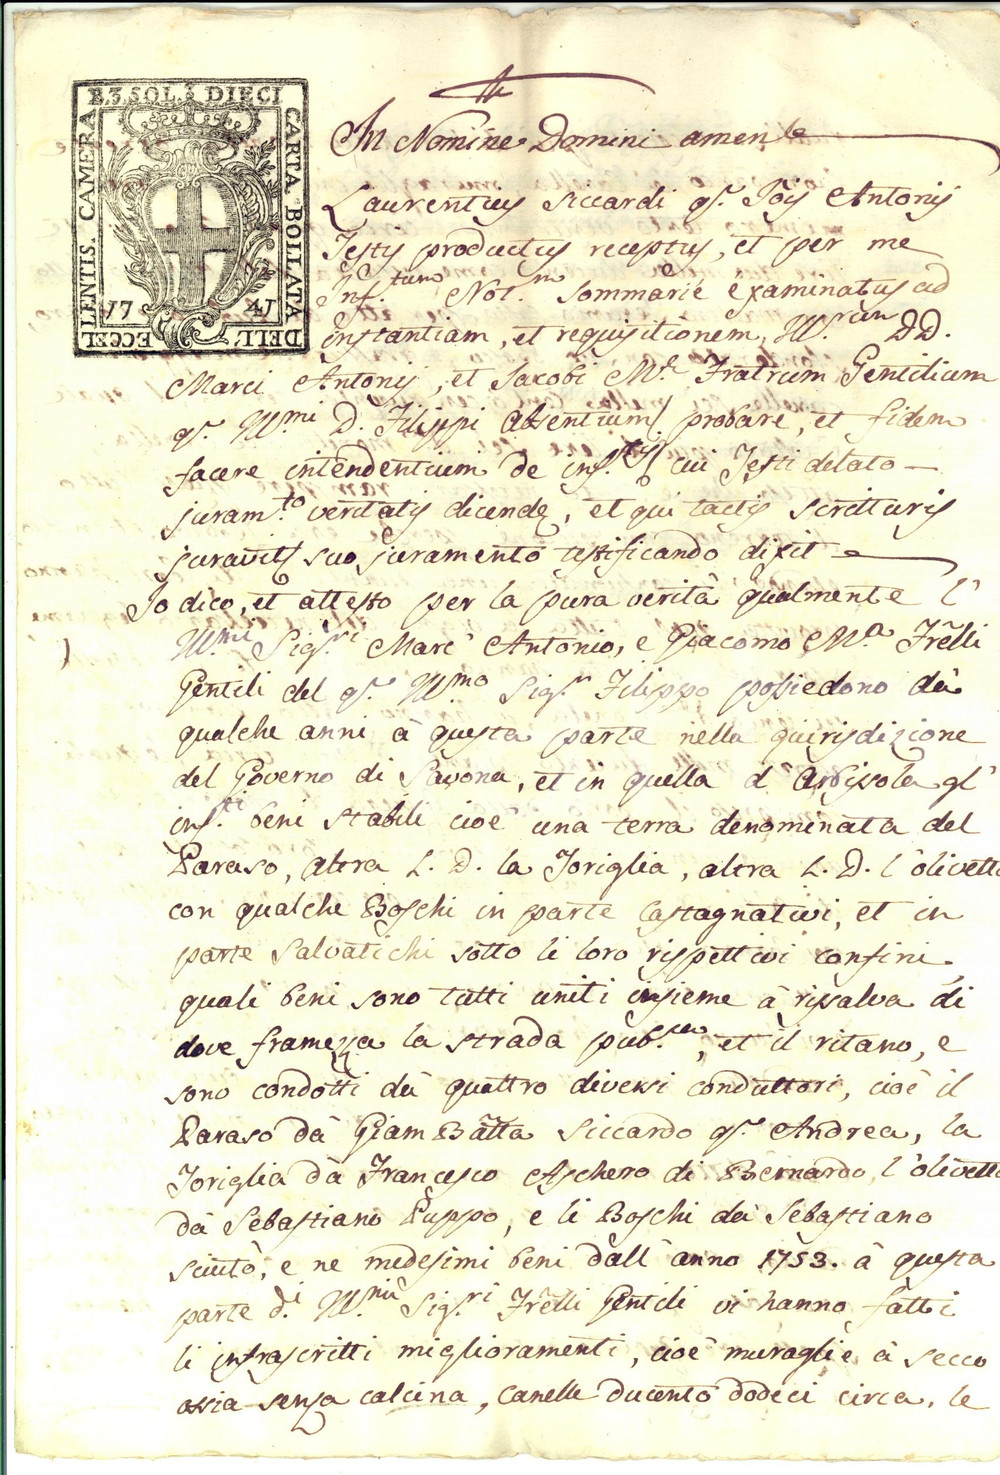 B. 3. SOL. 3 DIECI
CARTA BOLLATA
DELL' ECCEL
LENTIS. CAMERA
17 41
In Nomine Domini amen
Laurentius Siccardi q.m Jo:is Antonij
Testis productus receptus, et per me
Inf.tum Not.m sommarie examinatus ad
instantiam, et requisitionem, Ill.rum DD.
Marci Antonij, et Jacobi M.æ Fratrum Gentilium
q.m Ill.mi D. Filippi absentium probare, et fidem
facere intendentium de inf.tis cui Testi delato
juram.to veritatis dicendæ, et qui tactis scritturis
juravit suo juramento testificando dixit
Io dico, et attesto per la pura verità qualmente l'
Ill.mi Sig.ri Marc' Antonio, e Giacomo M.a Frelli
Gentili del q.m Ill.mo Sig.r Filippo possiedono dà
qualche anni à questa parte nella guirisdizione
del Governo di Savona, et in quella d' Arbissola gl'
inf.ti beni stabili cioè una terra denominata del
Paraso, altra L. D. la Toriglia, altra L. D. l'olivetto
con qualche Boschi in parte castagnativi, et in
parte salvatichi sotto li loro rispettivi confini
quali beni sono tutti uniti insieme à risalva di
dove framezza la strada pub.ca, et il ritano, e
sono condotti dà quattro diversi conduttori, cioè il
Paraso dà Giam Batta Siccardo q.m Andrea, la
Toriglia dà Francesco Aschero di Bernardo, l'olivetto
dà Sebastiano Puppo, e li Boschi da Sebastiano
Sciutò, e ne medesimi beni dall' anno 1753. à questa
parte d.i Ill.mi Sig.ri Frelli Gentili vi hanno fatti
li infrascritti miglioramenti, cioè muraglie à secco
ossia senza calcina, canelle ducento dodeci circa, le